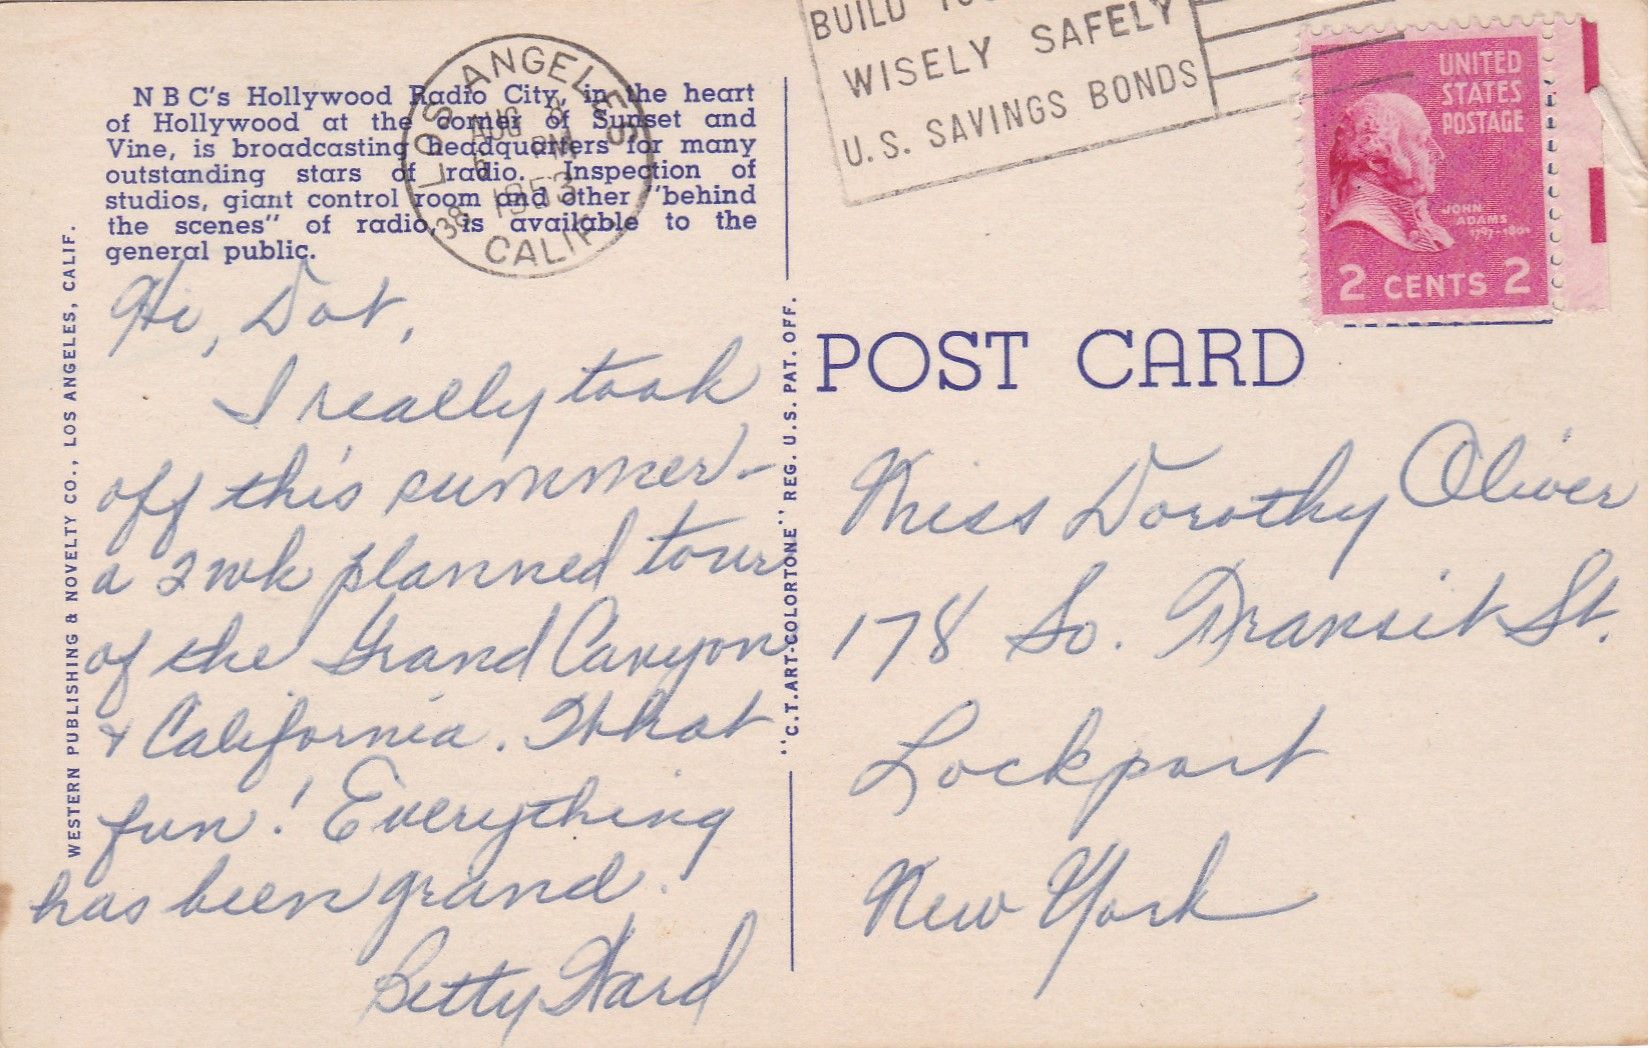 N B C's Hollywood Radio City, in the heart
of Hollywood at the corner of Sunset and
Vine, is broadcasting headquarters for many
outstanding stars of radio. Inspection of
studios, giant control room and other "behind
the scenes" of radio, is available to the
general public.
LOS ANGELES
AUG 3
6 PM
1953
38 CALIF.
BUILD
WISELY SAFELY
U.S. SAVINGS BONDS
UNITED
STATES
POSTAGE
JOHN
ADAMS
1797-1801
2 CENTS 2
WESTERN PUBLISHING & NOVELTY CO., LOS ANGELES, CALIF.
Hi, Dot,
I really took
off this summer-
a 2 wk planned tour
of the Grand Canyon
& California. What
fun! Everything
has been grand.
Betty Ward
"C.T. ART-COLORTONE" REG. U.S. PAT. OFF.
POST CARD
Miss Dorothy Oliver
178 So. Transit St.
Lockport
New York